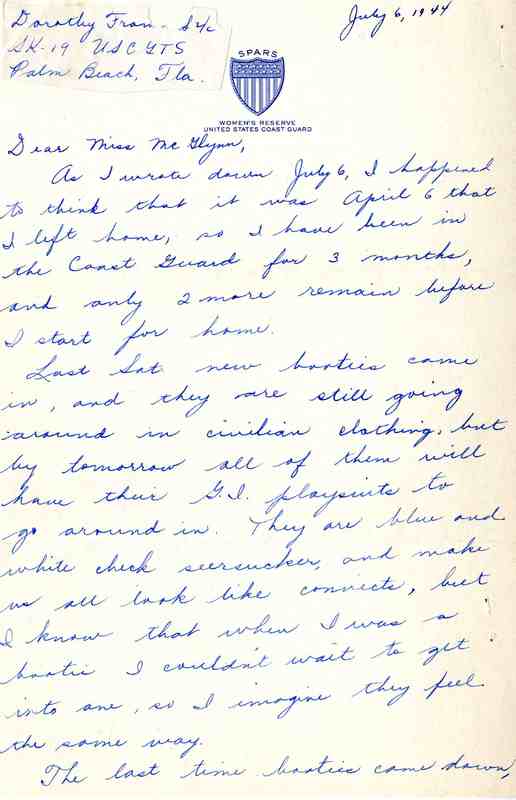 Dorothy Tram - S2/c
SK-19 USCGTS
Palm Beach, Fla.
July 6, 1944
SPARS
WOMEN'S RESERVE
UNITED STATES COAST GUARD
Dear Miss McGlynn,
As I wrote down July 6, I happened
to think that it was April 6 that
I left home, so I have been in
the Coast Guard for 3 months,
and only 2 more remain before
I start for home.
Last Sat. new booties came
in, and they are still going
around in civilian clothing, but
by tomorrow all of them will
have their G.I. playsuits to
go around in. They are blue and
white check seersucker, and make
us all look like convicts, but
I know that when I was a
bootie I couldn't wait to get
into one, so I imagine they feel
the same way.
The last time booties came down,